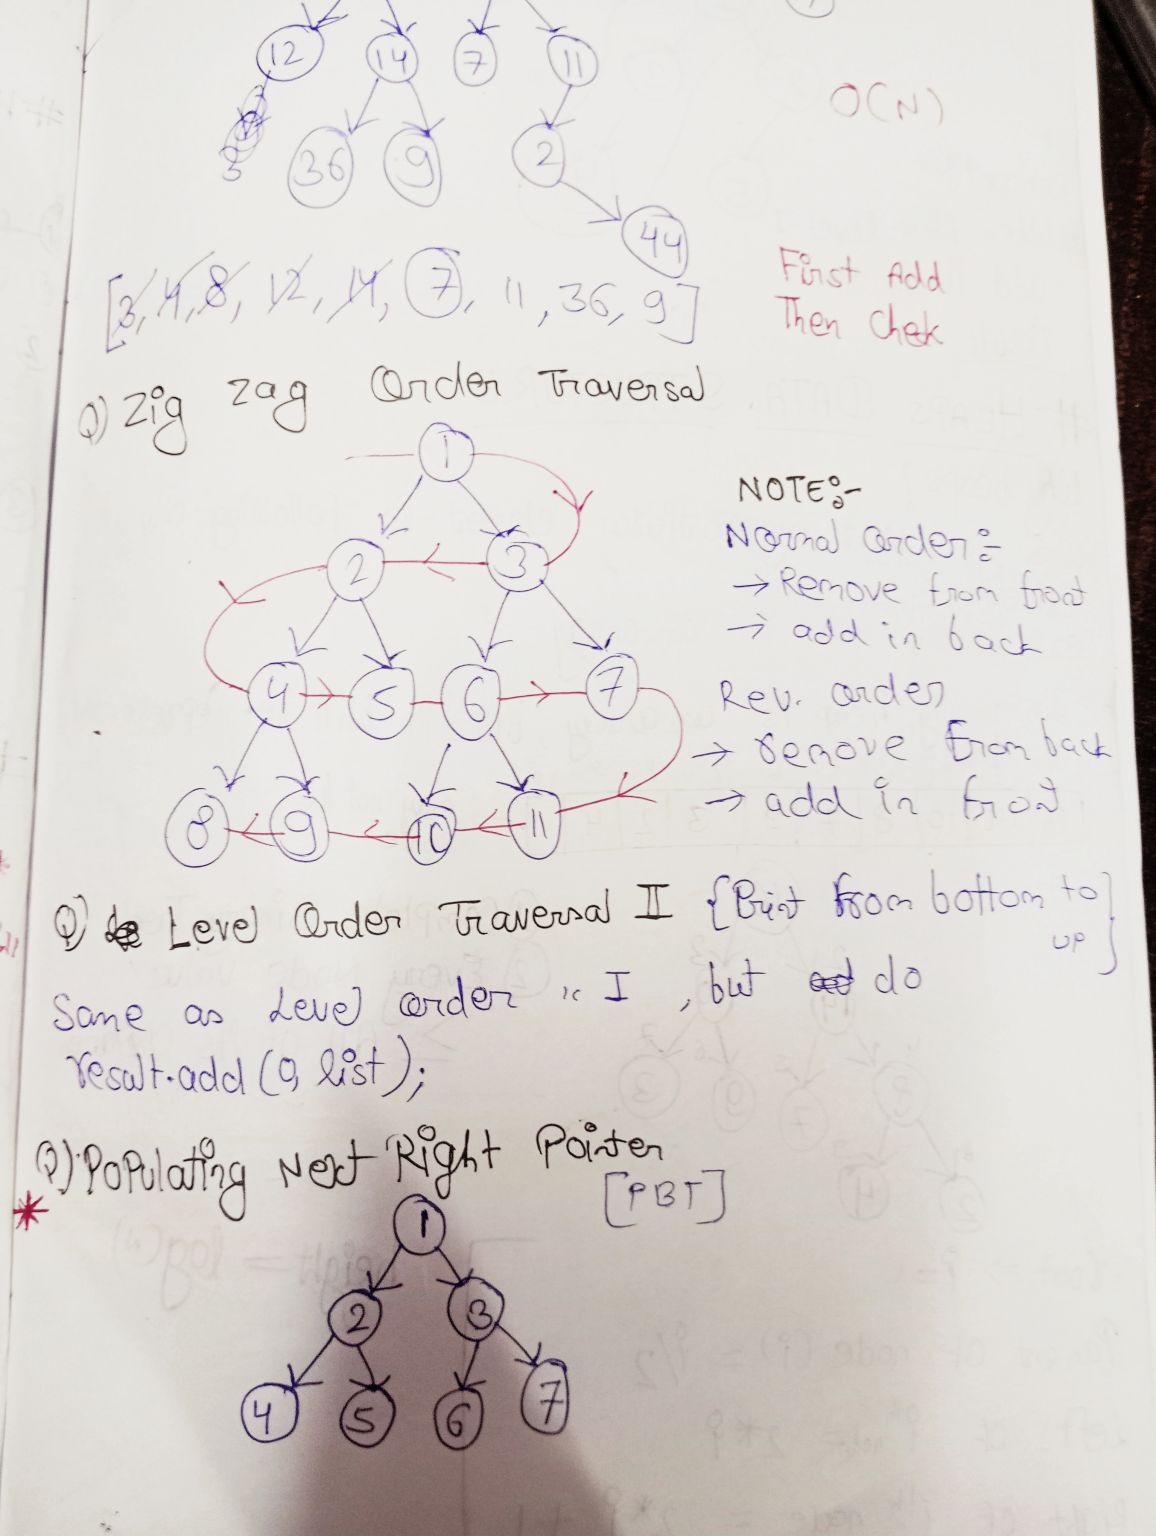 12 14 7 11
36 9 2
44
O(N)
[3, 4, 8, 12, 14, 7, 11, 36, 9]
First Add
Then Chek
Q) Zig Zag Order Traversal
1
2 3
4 5 6 7
8 9 10 11
NOTE:-
Normal Order:-
→ Remove from front
→ add in back
Rev. order
→ remove from back
→ add in front
Q) Level Order Traversal II {Print from bottom to
up}
Same as Level order " I , but do
result.add(0, list);
Q) Populating Next Right Pointer
[PBT]
*
1
2 3
4 5 6 7